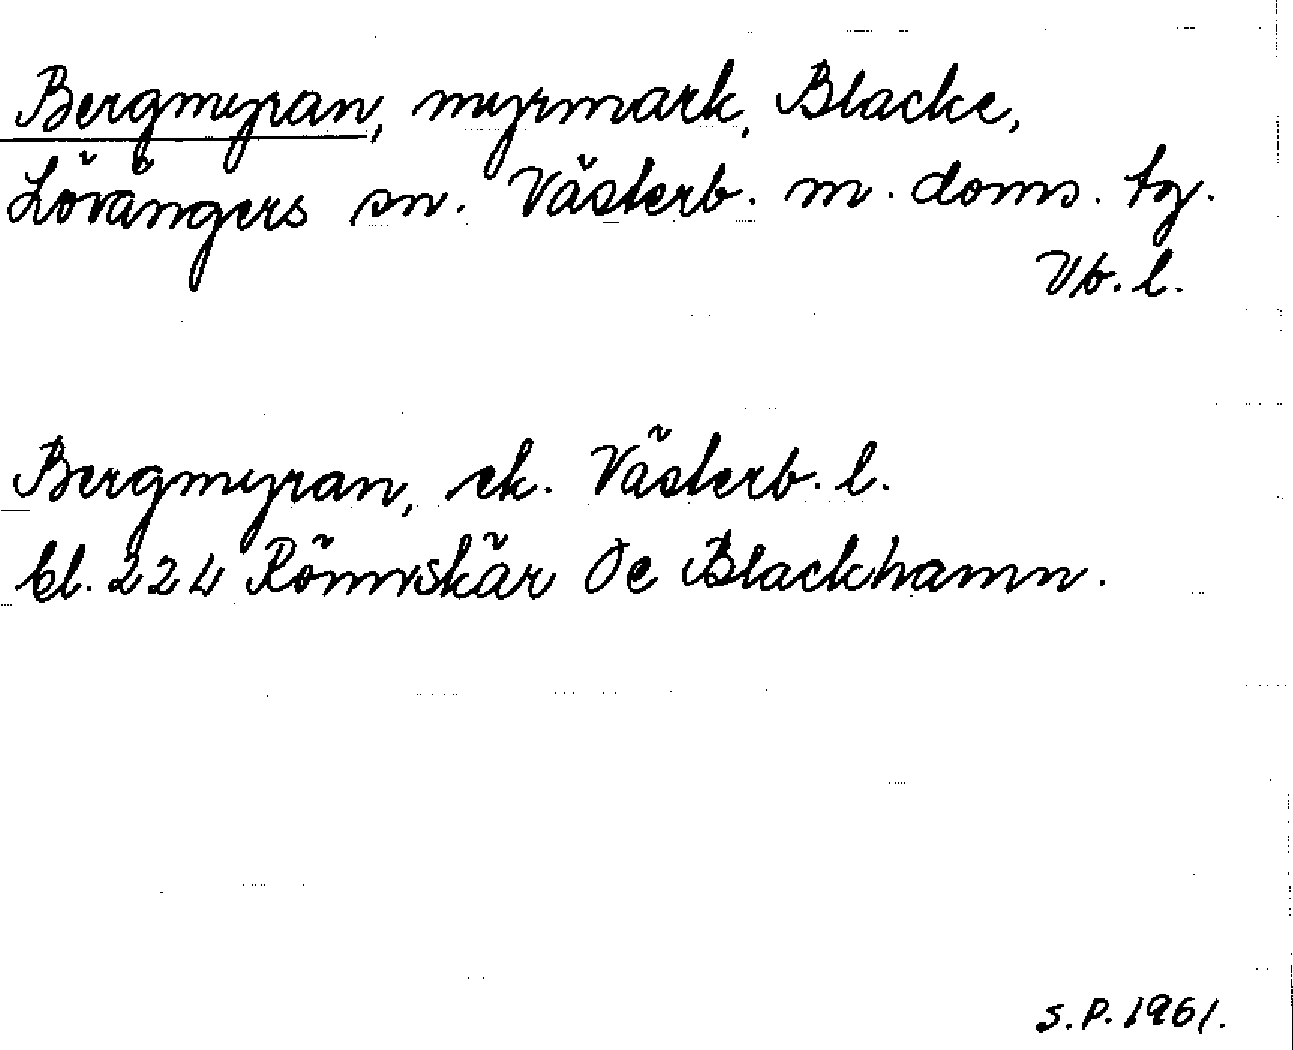 Bergmyran, myrmark, Blacke,
Lövångers sn. Västerb. m. doms. tg.
Vb. l.
Bergmyran, ek. Västerb. l.
bl. 224 Rönnskär Öe Blackhamn.
S.P. 1961.